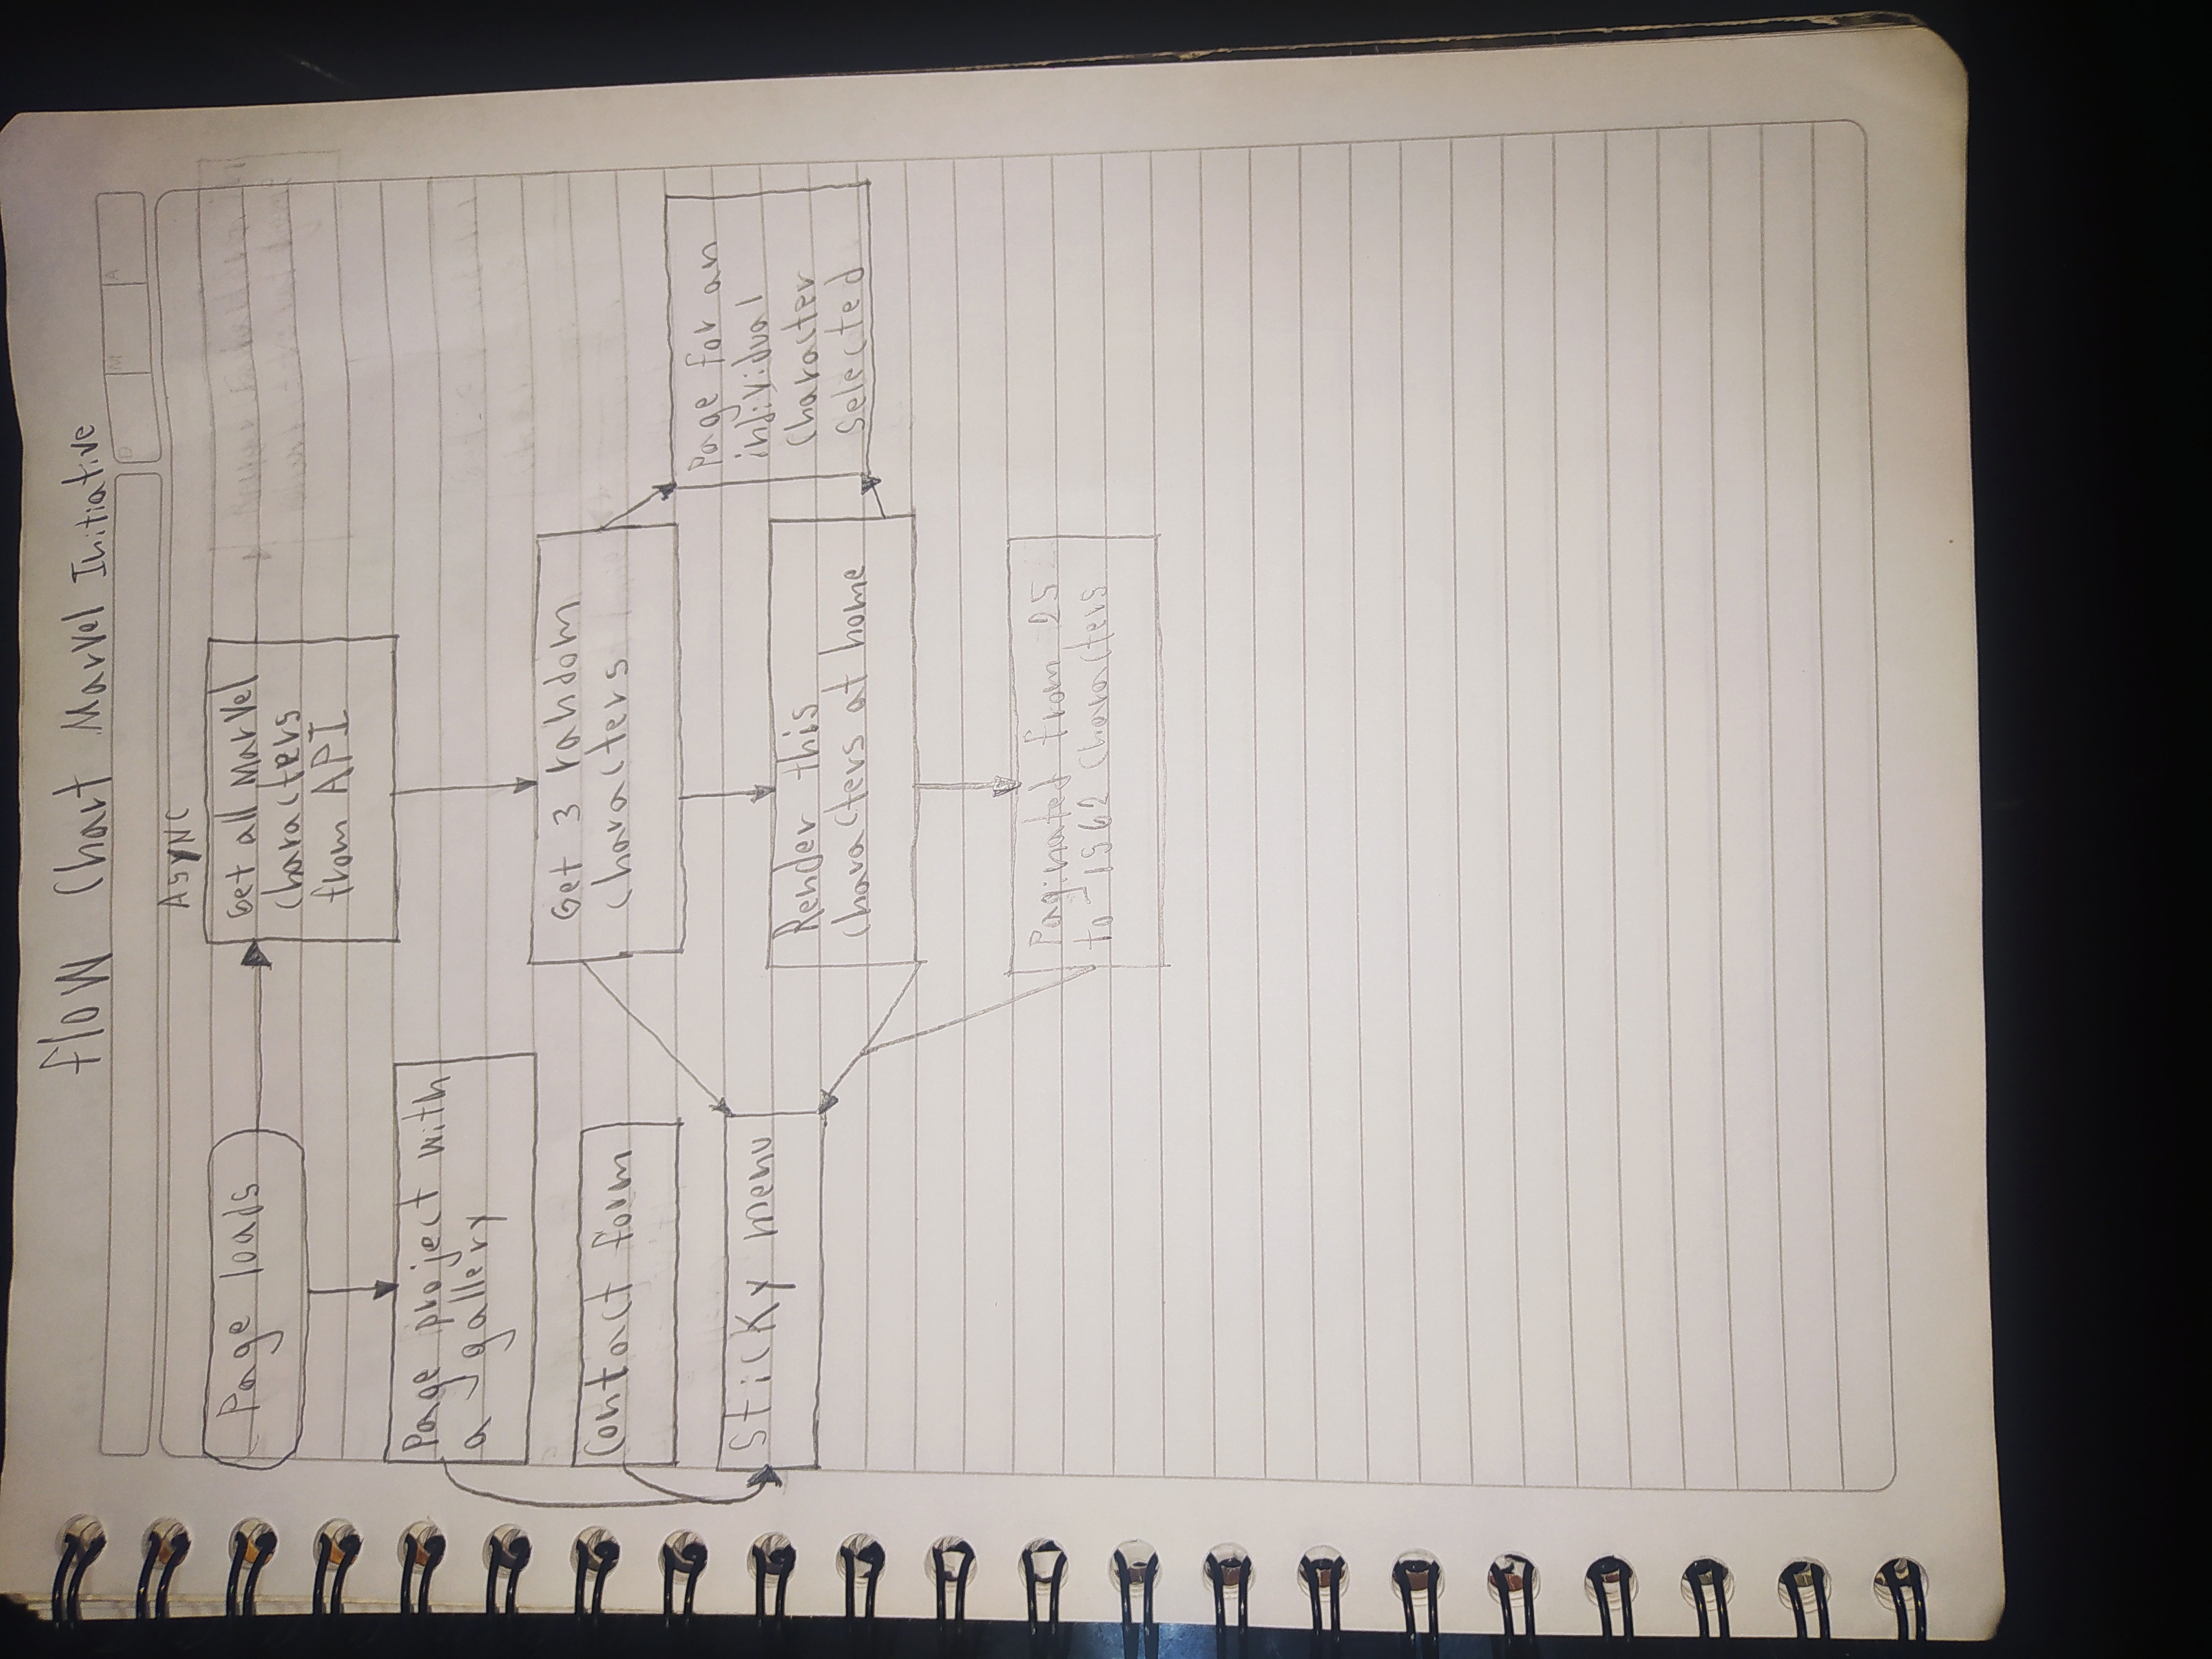 Flow Chart Marvel Initiative
D M A
ASYNC
Page loads
Get all Marvel
characters
from API
Page project with
a gallery
Get 3 random
characters
Contact form
Sticky menu
Page for an
individual
Character
Selected
Render this
characters at home
Paginated from 25
to 1562 Characters